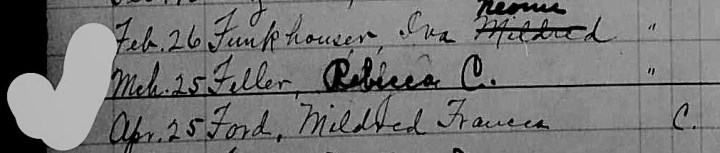 Feb. 26 Funkhouser, Iva Mildred "
Mch. 25 Feller, Rebecca C. "
Apr. 25 Ford, Mildred Frances C.